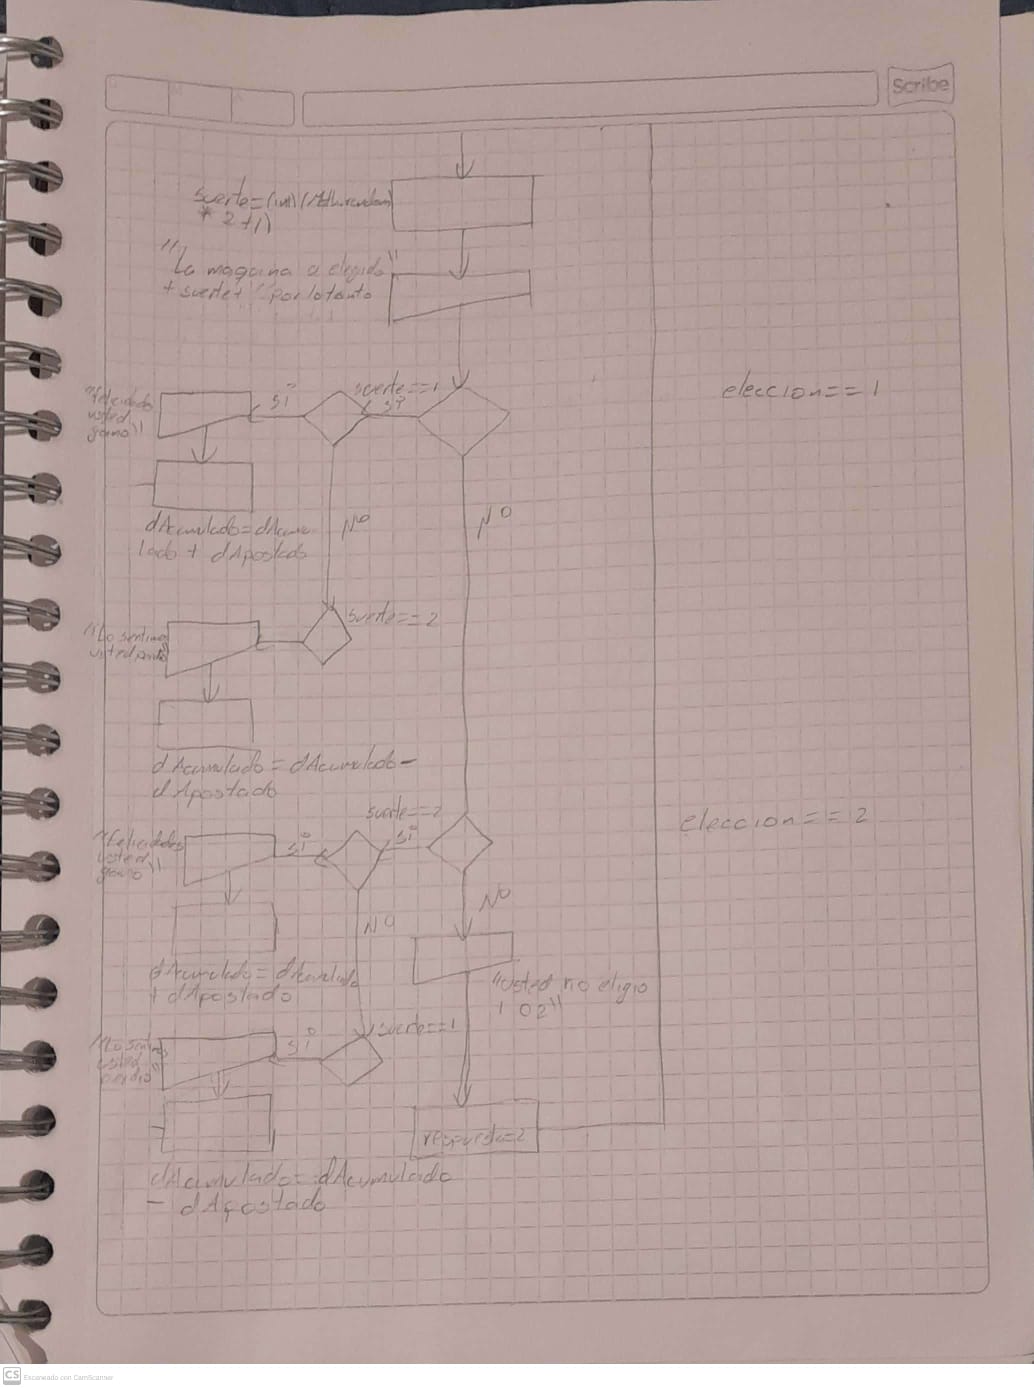 Scribe
suerte=(int)(Math.random
* 2 +1)
"La maquina a elegido"
+ suerte+ " por lo tanto
suerte==1
eleccion==1
"Felicidades
usted
gano"
si
si
dAcumulado=dAcumu
lado + dApostado
NO
NO
suerte==2
"Lo sentimos
usted perdio
dAcumulado = dAcumulado-
dApostado
suerte==2
eleccion==2
"Felicidades
usted
gano"
si
si
NO
NO
dAcumulado = dAcumulado
+ dApostado
"usted no eligio
1 o 2"
suerte==1
"Lo sentimos
usted
perdio"
si
respuesta=2
dAcumulado=dAcumulado
- dApostado
CS Escaneado con CamScanner